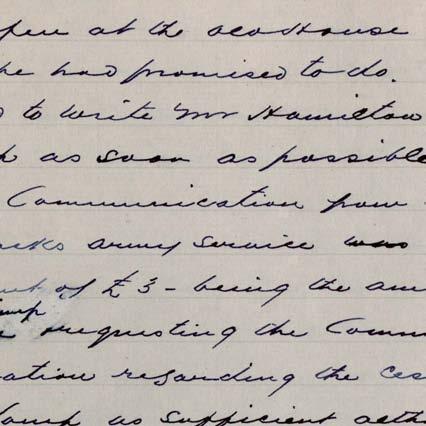 at the old House
he had promised to do.
to write Mr Hamilton
as soon as possible
Communication from
army service was
of £3 - being the
requesting the Comm
ation regarding the
as sufficient